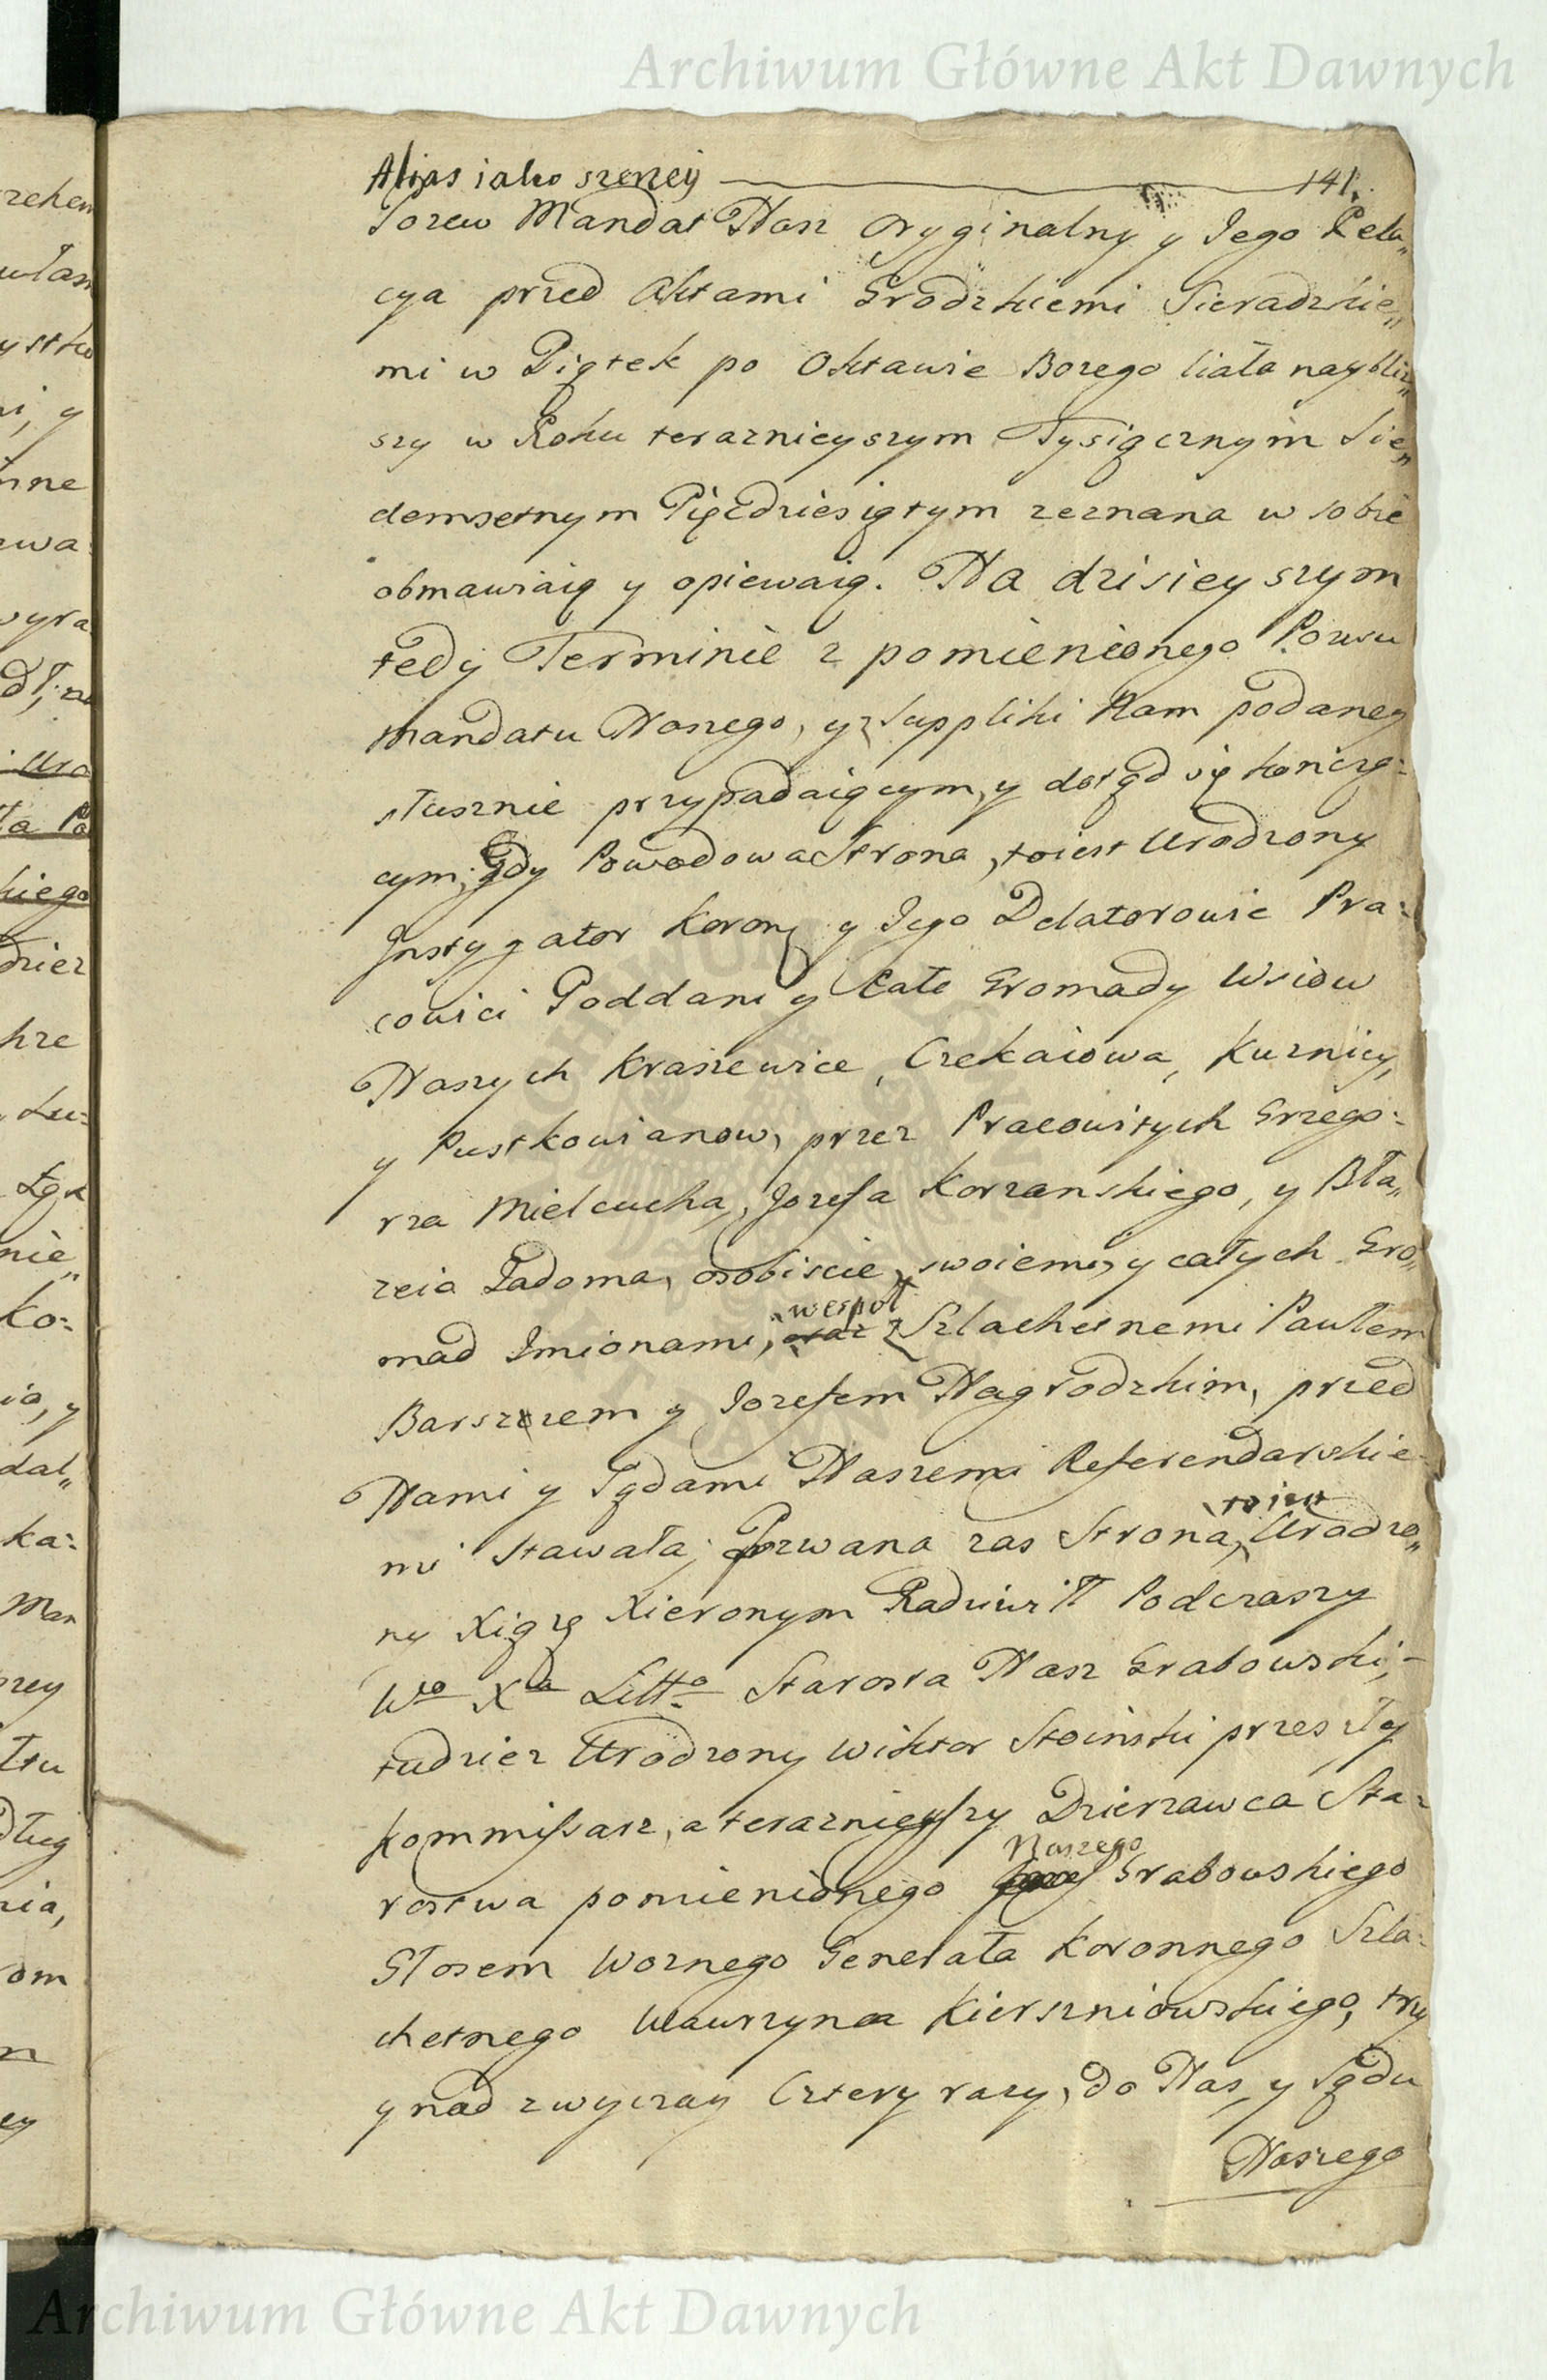 Archiwum Główne Akt Dawnych
Alias iako szerzey 141.
Pozew Mandat Nasz Oryginalny y Jego Rela„
cya przed Aktami Grodzkiemi Sieradzkie„
mi w Piątek po Oktawie Bozego Ciała naybliz„
szy w Roku teraznieyszym Tysiącznym Sie„
demsetnym Pięćdziesiątym zeznana w sobie
obmawiaią y opiewaią. Na dzisieyszym
tedy Terminie z pomienionego Pozwu
Mandatu Naszego, y z Suppliki Nam podaney
słusznie przypadaiącym, y dotąd się kończą:
cym; Gdy Powodowa Strona, toiest Urodzony
Instygator Koronny y Jego Delatorowie Pra:
cowici Poddani y Całe Gromady Wsiow
Naszych Kraszewice, Czekaiowa, Kuznicy,
y Pustkowianow, przez Pracowitych Grzego:
rza Mielcucha, Jozefa Korzenskiego, y Bła„
zeia Jadoma, osobiscie swoiemi, y całych Gro„
mad Imionami, wespoł z Szlachetnemi Pawłem
Barszczem y Jozefem Nagrodzkim, przed
Nami y Sądami Naszemi Referendarskie
mi stawała; Pozwana zas Strona, toiest Urodzo„
ny Xiążę Hieronym Radziwiłł Podczaszy
Wo Xa Litto Starosta Nasz Grabowski;
tudziez Urodzony Wiktor Stoinski przeszły
Kommissarz, a terazniejszy Dzierzawca Sta:
rostwa pomienionego Naszego Grabowskiego
Głosem Woznego Generała Koronnego Szla:
chetnego Wawrzynca Kierszniowskiego, trzy
y nad zwyczay Cztery razy, do Nas, y Sądu
Naszego
Archiwum Główne Akt Dawnych